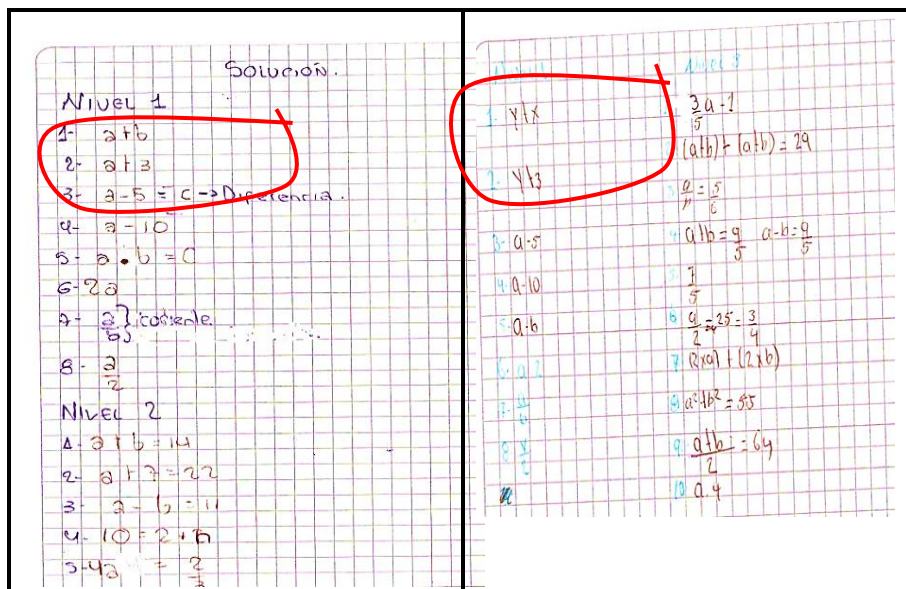 SOLUCIÓN.
NIVEL 1
1- a+b
2- a+3
3- a-5 = C → Diferencia.
4- a-10
5- a•b = C
6- 2a
7- a/b } cociente
8- a/2
NIVEL 2
1- a+b=14
2- a+7=22
3- a-b=11
4- 10=2+b
1- y+x
2- y+3
3- a-5
4- a-10
5- a-b
6- a2
8 y/2
Nivel 3
3/5 a-1
(a+b)+(a+b)=29
4 a+b=9/5 a-b=9/5
5- 7/5
7 (2xa)+(2xb)
a²+b²=55
9 a+b/2=64
10 a.4